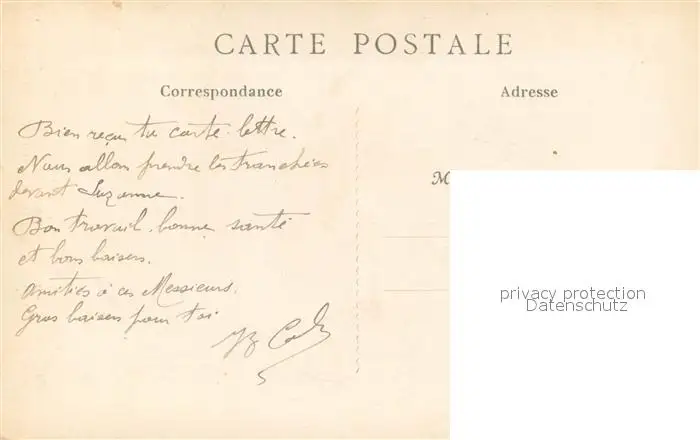 CARTE POSTALE
Correspondance
Adresse
Bien reçu ta carte-lettre.
Nous allons prendre les tranchées
devant Suzanne.
Bon travail, bonne santé
et bons baisers.
Amitiés à ces Messieurs.
Gros baisers pour toi
M
privacy protection
Datenschutz